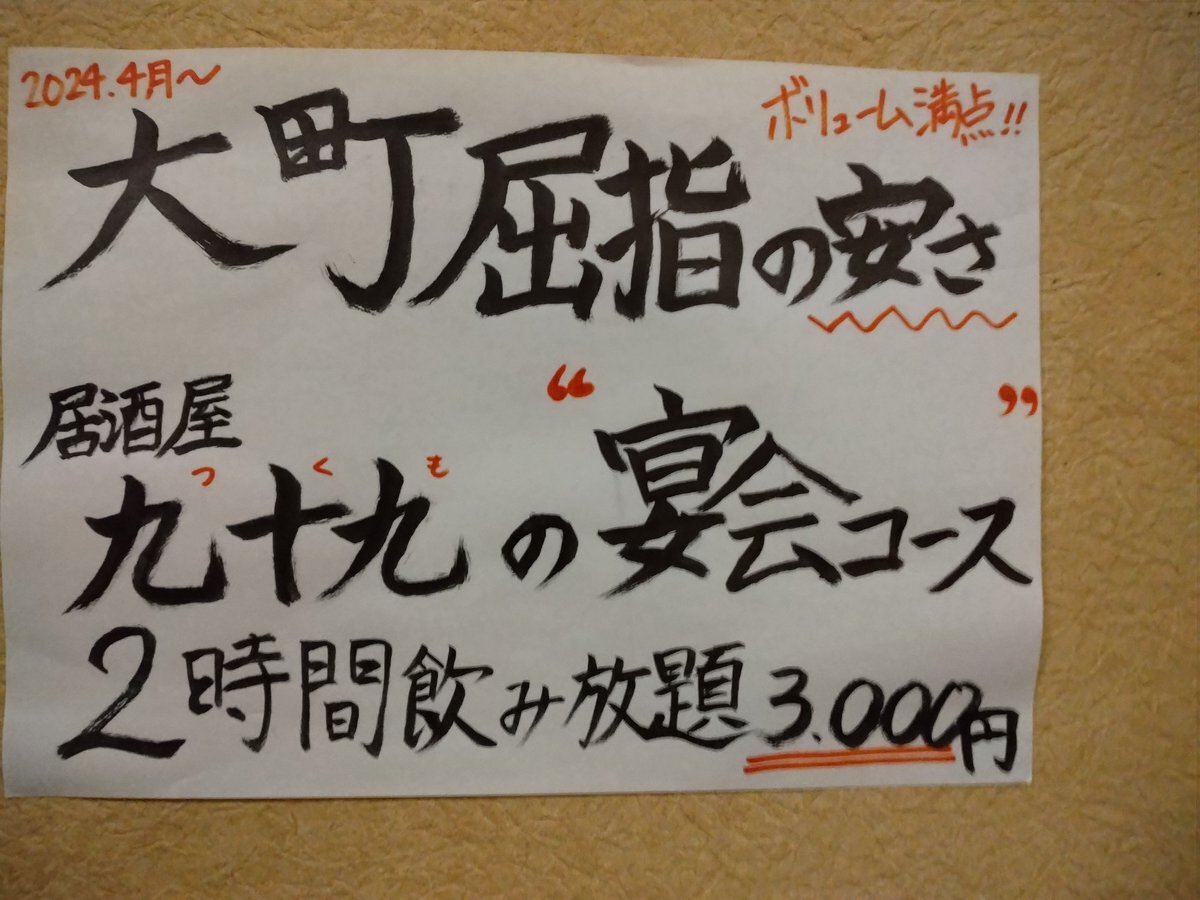 2024.4月〜
ボリューム満点!!
大町屈指の安さ
居酒屋
つくも
九十九の“宴会コース”
2時間飲み放題3.000円